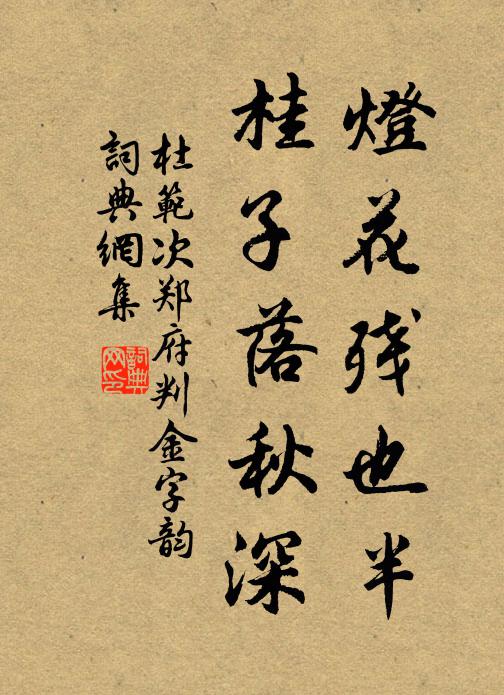 燈花残也半
桂子落秋深
杜範次郑府判金字韵
詞典網集
詞典网印